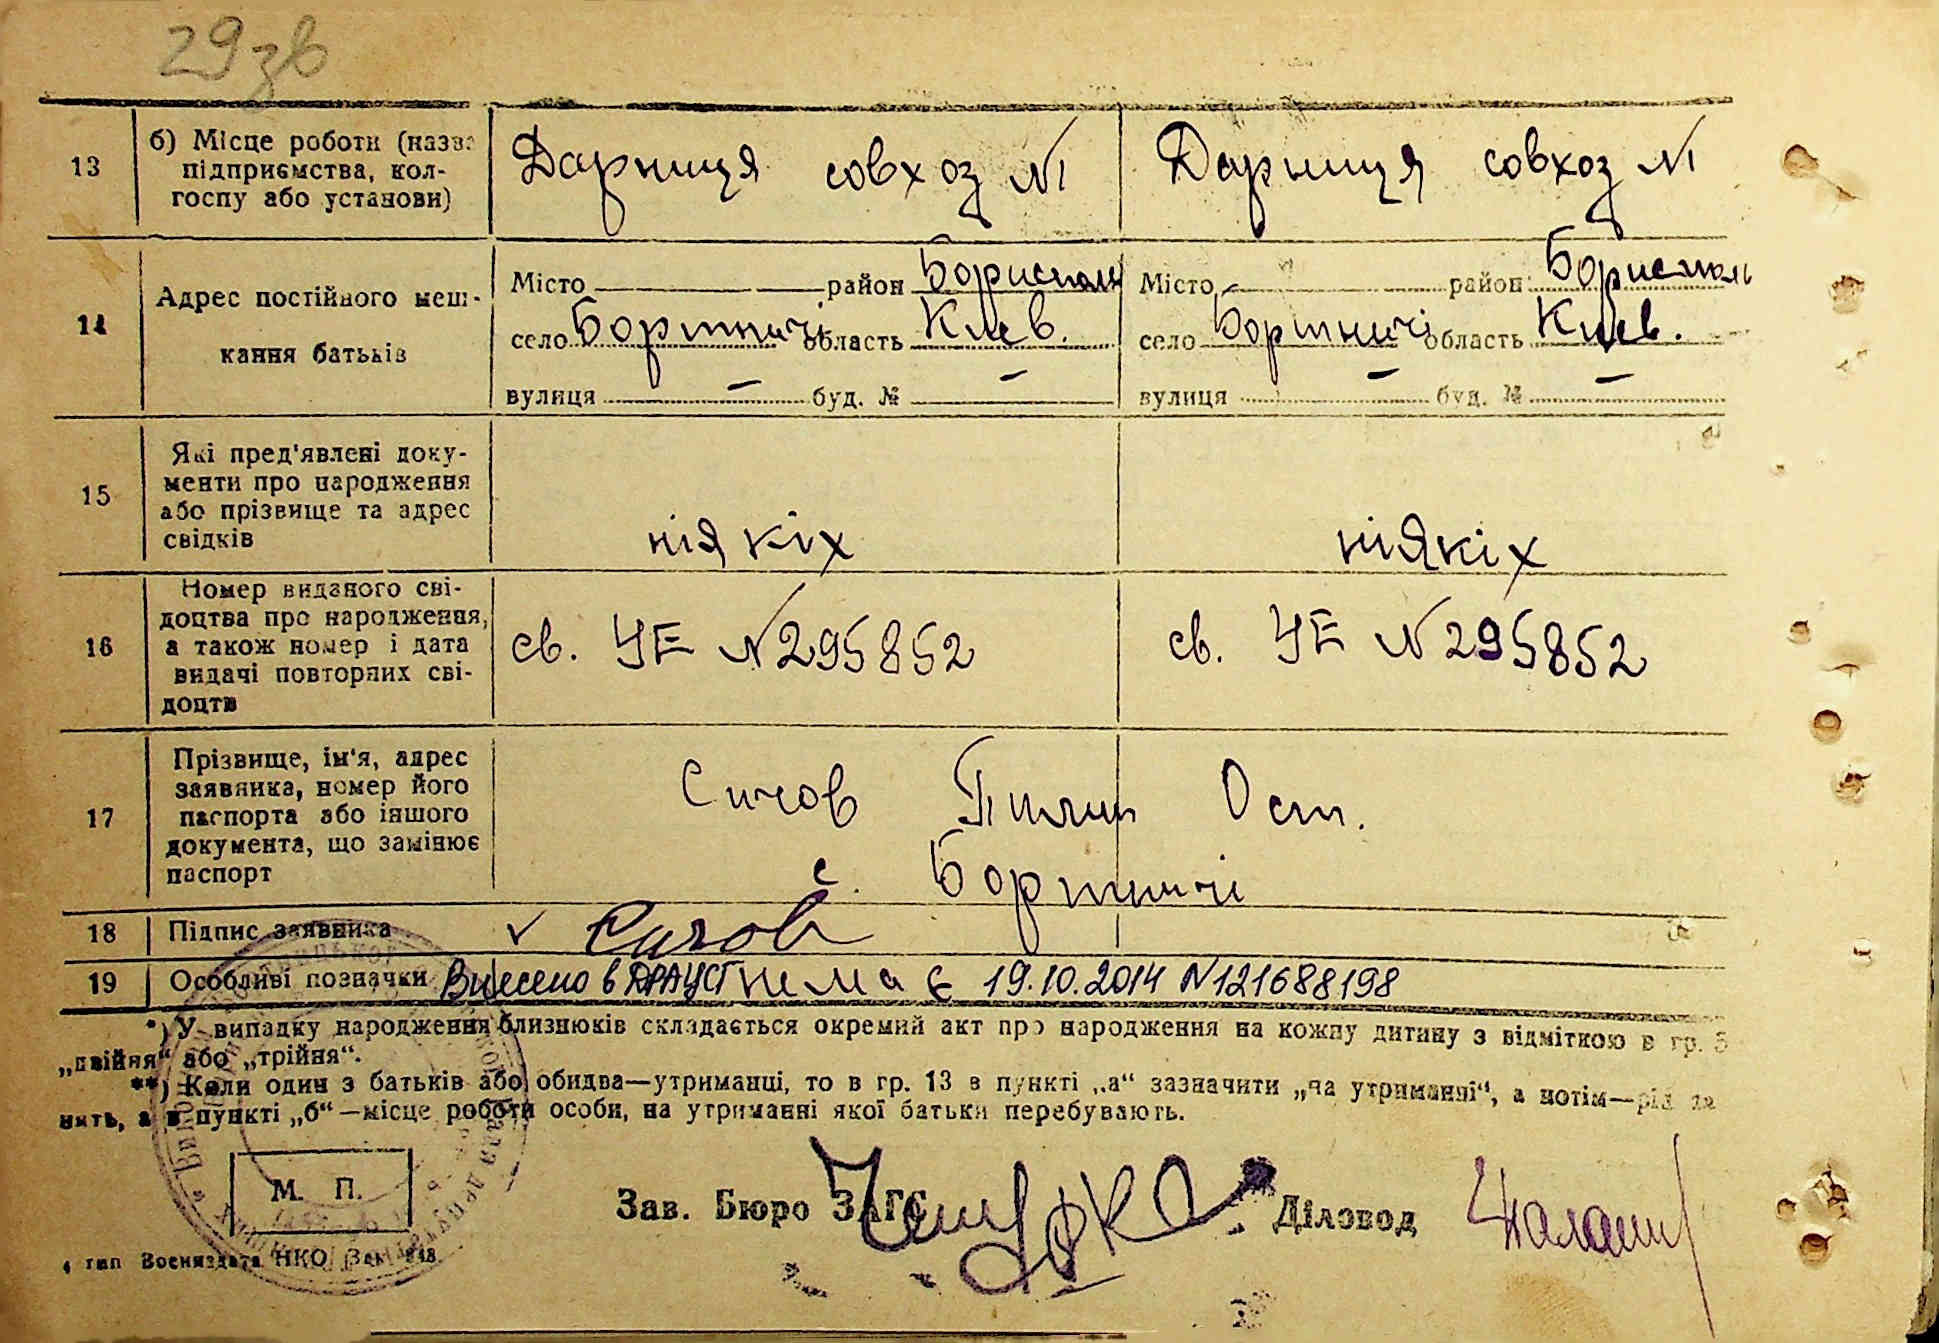 29 зв
13 б) Місце роботи (назва Дарниця совхоз №1 Дарниця совхоз №1
підприємства, кол-
госпу або установи)
14 Адрес постійного меш-
кання батьків
Місто район Бориспаль Місто район Борисполь
село Бортничі область Киев. село Бортничі область Киев.
вулиця — буд. № — вулиця — буд. № —
15 Які пред'явлені доку-
менти про народження
або прізвище та адрес
свідків ніякіх ніякіх
16 Номер виданого сві-
доцтва про народження,
а також номер і дата св. УЕ №295852 св. УЕ №295852
видачі повторних сві-
доцтв
17 Прізвище, ім'я, адрес
заявника, номер його Сичов Пилип Ост.
паспорта або іншого
документа, що замінює с. Бортничі
паспорт
18 Підпис заявника ✓ Сичов
19 Особливі позначки Внесено в ДРАЦСГ нема є 19.10.2014 №121688198
*) У випадку народження близнюків складається окремий акт про народження на кожну дитину з відміткою в гр. 5
„двійня“ або „трійня“.
**) Коли один з батьків або обидва—утриманці, то в гр. 13 в пункті „а“ зазначити „на утриманні“, а потім—рід за
нять, а в пункті „б“—місце роботи особи, на утриманні якої батьки перебувають.
М. П.
Зав. Бюро ЗАГС Діловод
4 тип Воениздата НКО Зак.